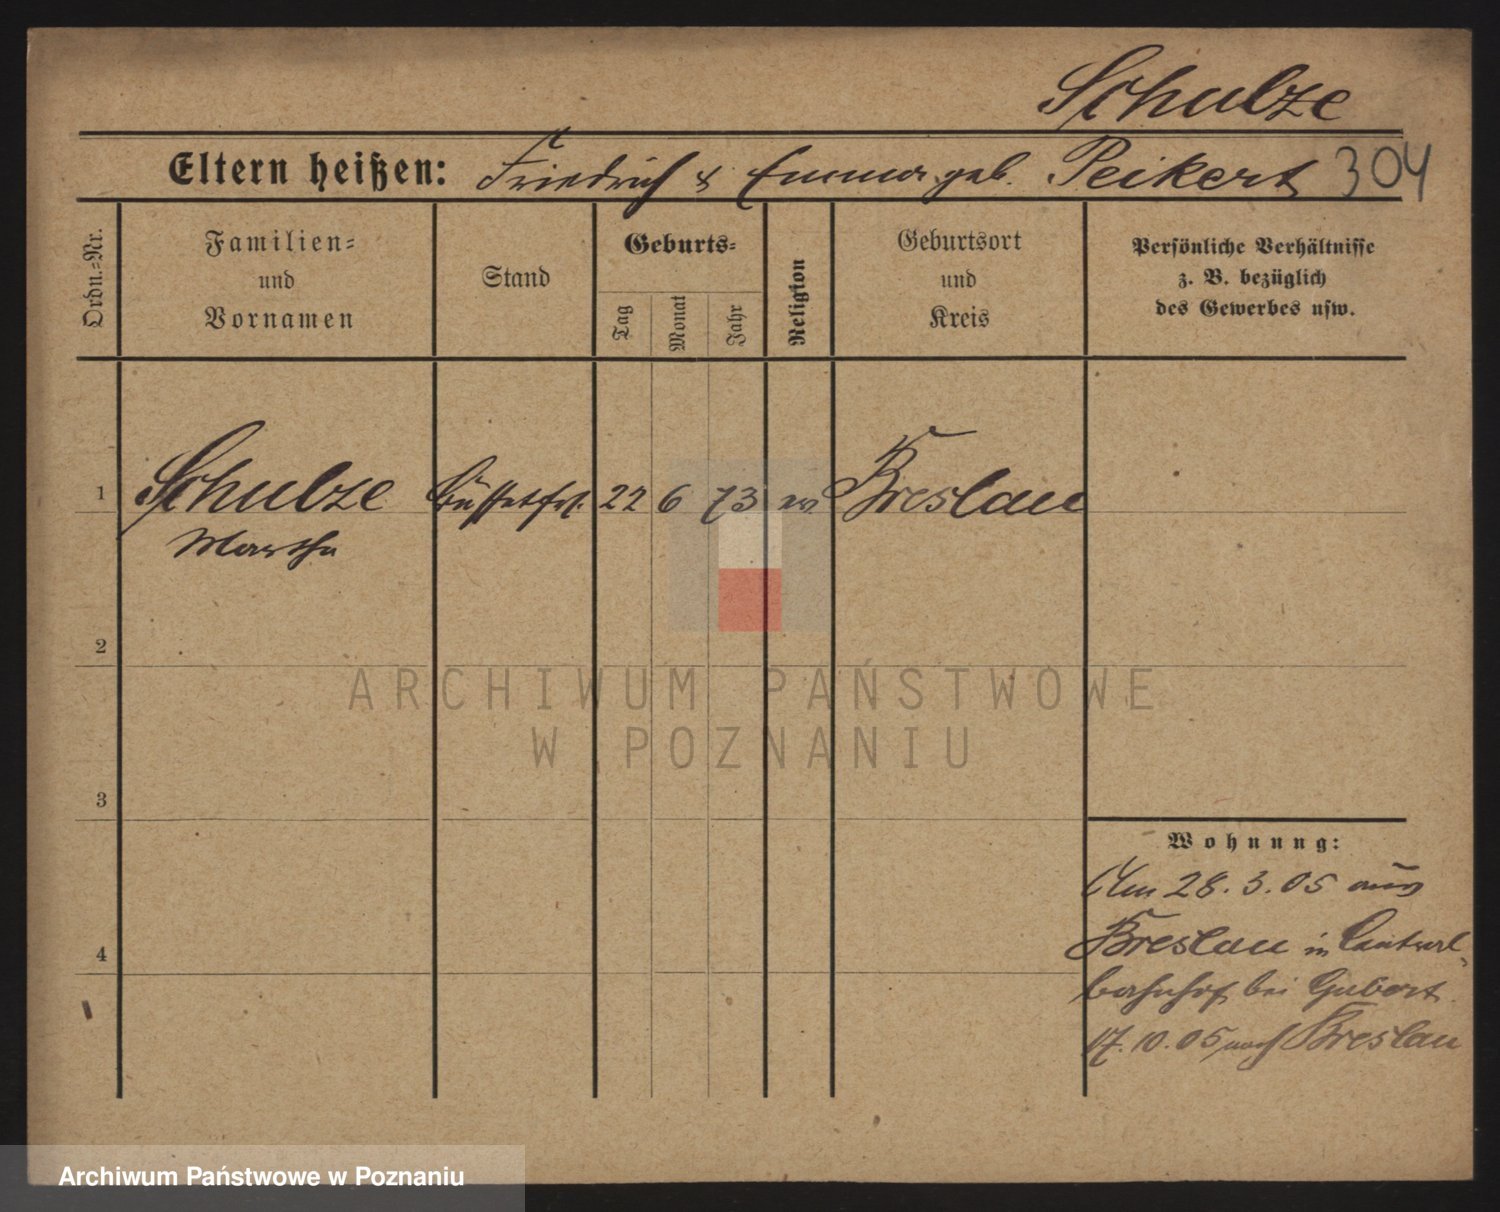 Schulze
Eltern heißen: Friedrich & Emma geb. Peikert 304
Ordn.-Nr.
Familien- und Vornamen
Stand
Geburts-
Tag
Monat
Jahr
Religion
Geburtsort und Kreis
Persönliche Verhältnisse
z. B. bezüglich
des Gewerbes usw.
1 Schulze Büffetfrl. 22 6 73 ev. Breslau
Martha
2
3
4
ARCHIWUM PAŃSTWOWE
W POZNANIU
Wohnung:
Am 28. 3. 05 aus
Breslau in Central-
bahnhof bei
17. 10. 05 nach Breslau
Archiwum Państwowe w Poznaniu